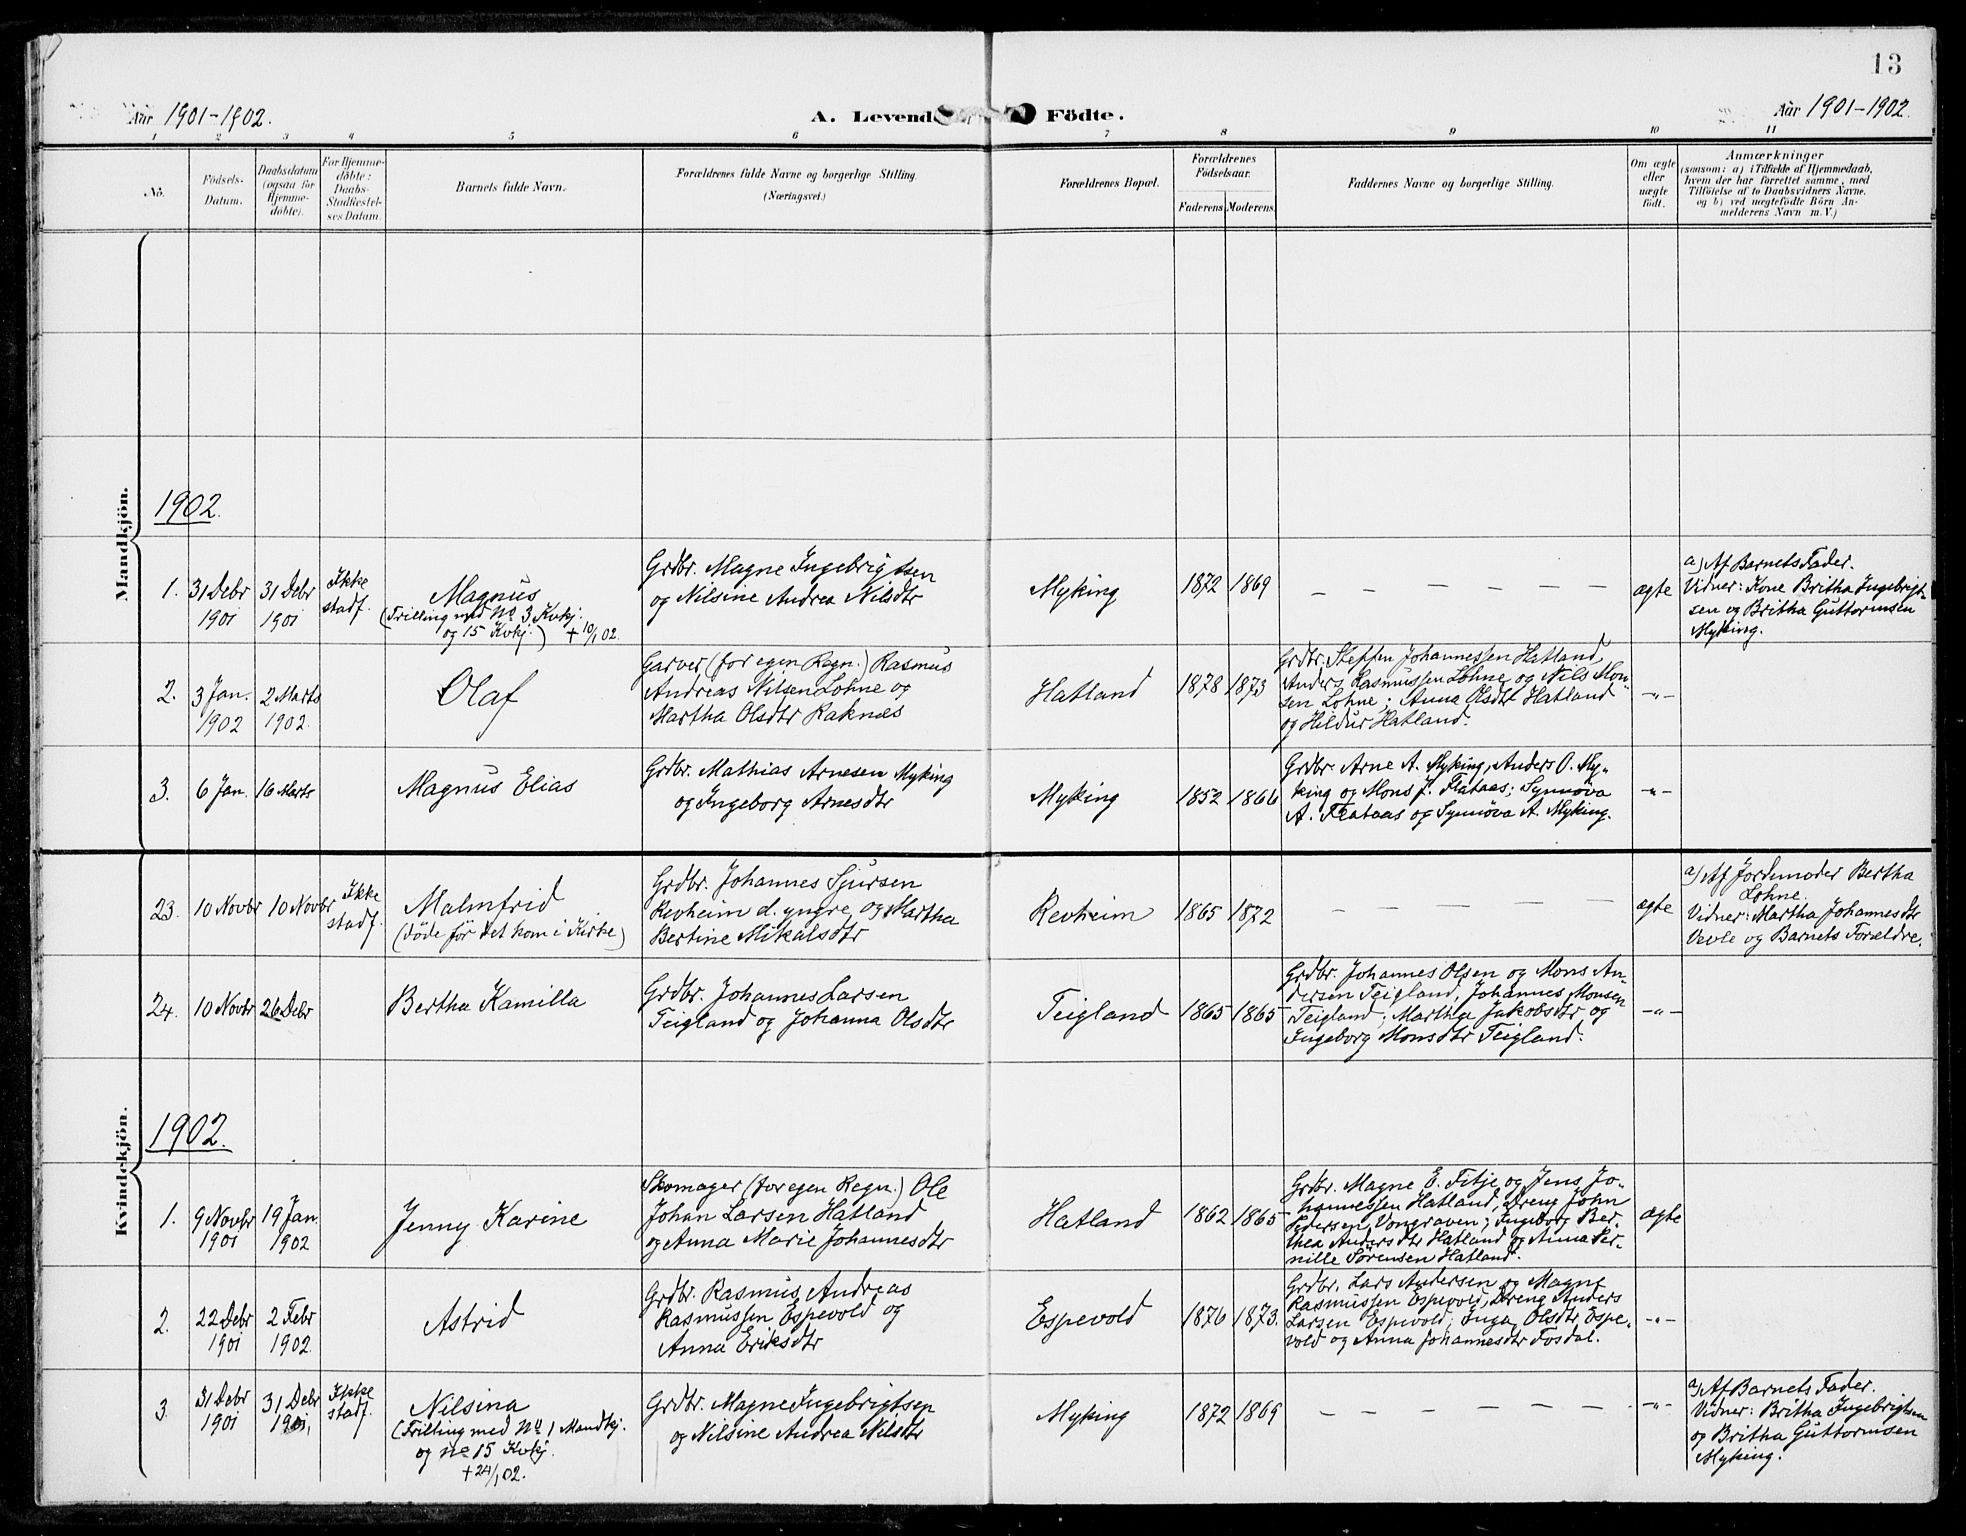 13
Aar 1901-1902.
A. Levend Födte.
Aar 1901-1902.
1 2 3 4 5 6 7 8 9 10 11
No.
Födsels-
Datum.
Daabsdatum
(ogsaa for
Hjemme-
döbte).
For Hjemme-
döbte:
Daabs-
Stadfæstel-
ses Datum.
Barnets fulde Navn.
Forældrenes fulde Navne og borgerlige Stilling.
(Næringsvei.)
Forældrenes Bopæl.
Forældrenes
Födselsaar.
Faderens Moderens
Faddernes Navne og borgerlige Stilling.
Om ægte
eller
uægte
födt.
Anmærkninger
(saasom: a) i Tilfælde af Hjemmedaab,
hvem der har forrettet samme, med
Tilföielse af to Daabsvidners Navne.
og b) ved uægtefödte Börn An-
melderens Navn m. V.)
Mandkjön.
1902.
1.
31 Debr
1901
31 Debr
1901
Ikke
stadf.
Magnus
(Trilling med No 3 Kvkj.
og 15 Kvkj.) + 10/1 02.
Grdbr. Magne Ingebrigtsen
og Nilsine Andrea Nilsdtr
Myking
1872 1869
— — — — — —
ægte
a) Af Barnets Fader.
Vidner: Kone Britha Ingebrigt-
sen og Britha Guttormsen
Myking.
2.
3 Jan.
1902
2 Marts
1902.
Olaf
Garver (for egen Regn.) Rasmus
Andreas Nilsen Lohne og
Martha Olsdtr Raknæs
Hatland
1878 1873
Grdbr. Steffen Johannessen Hatland,
Anders Rasmussen Lohne og Nils Mon-
sen Lohne; Anna Olsdtr Hatland
og Hildur Hatland.
-"-
3.
6 Jan.
16 Marts
Magnus Elias
Grdbr. Mathias Arnesen Myking
og Ingeborg Arnesdtr
Myking
1852 1866
Grdbr. Arne A. Myking, Anders O. My-
king og Mons J. Flataas; Synnøva
A. Flataas og Synnøva A. Myking.
-"-
Kvindekjön.
23.
10 Novbr
10 Novbr
Ikke
stadf.
Malmfrid
(döde før det kom i Kirke)
Grdbr. Johannes Sjursen
Revheim d. yngre og Martha
Bertine Mikalsdtr
Revheim
1865 1872
— — — — — —
ægte
a) Af Jordemoder Bertha
Lohne.
Vidner: Martha Johannesdtr
Vevle og Barnets Forældre.
24.
10 Novbr
26 Debr
Bertha Kamilla
Grdbr. Johannes Larsen
Teigland og Johanna Olsdtr
Teigland
1865 1865
Grdbr. Johannes Olsen og Mons An-
dersen Teigland, Johannes Monsen
Teigland; Martha Jakobsdtr og
Ingeborg Monsdtr Teigland.
-"-
1902.
1.
9 Novbr
1901
19 Jan.
1902
Jenny Karine
Skomager (for egen Regn.) Ole
Johan Larsen Hatland
og Anna Marie Johannesdtr
Hatland
1862 1865
Grdbr. Magne E. Fitje og Jens Jo-
hannessen Hatland, Dreng John
Pedersen Vongraven; Ingeborg Ber-
thea Andersdtr Hatland og Anna Per-
nille Sörensen Hatland.
ægte
2.
22 Debr
1901
2 Febr
1902.
Astrid
Grdbr. Rasmus Andreas
Rasmussen Espevold og
Anna Eriksdtr
Espevold
1876 1873.
Grdbr. Lars Andersen og Magne
Rasmussen Espevold, Dreng Anders
Larsen Espevold; Inga Olsdtr Espe-
vold og Anna Johannesdtr Fosdal.
-"-
3.
31 Debr
1901
31 Debr
1901,
Ikke
stadf.
Nilsina
(Trilling med No 1 Mandkj.
og No 15 Kvkj.
+ 24/1 02.
Grdbr. Magne Ingebrigtsen
og Nilsine Andrea Nilsdtr
Myking
1872 1869
— — — — — —
-"-
a) Af Barnets Fader.
Vidner: Britha Ingebrigtsen
og Britha Guttormsen
Myking.